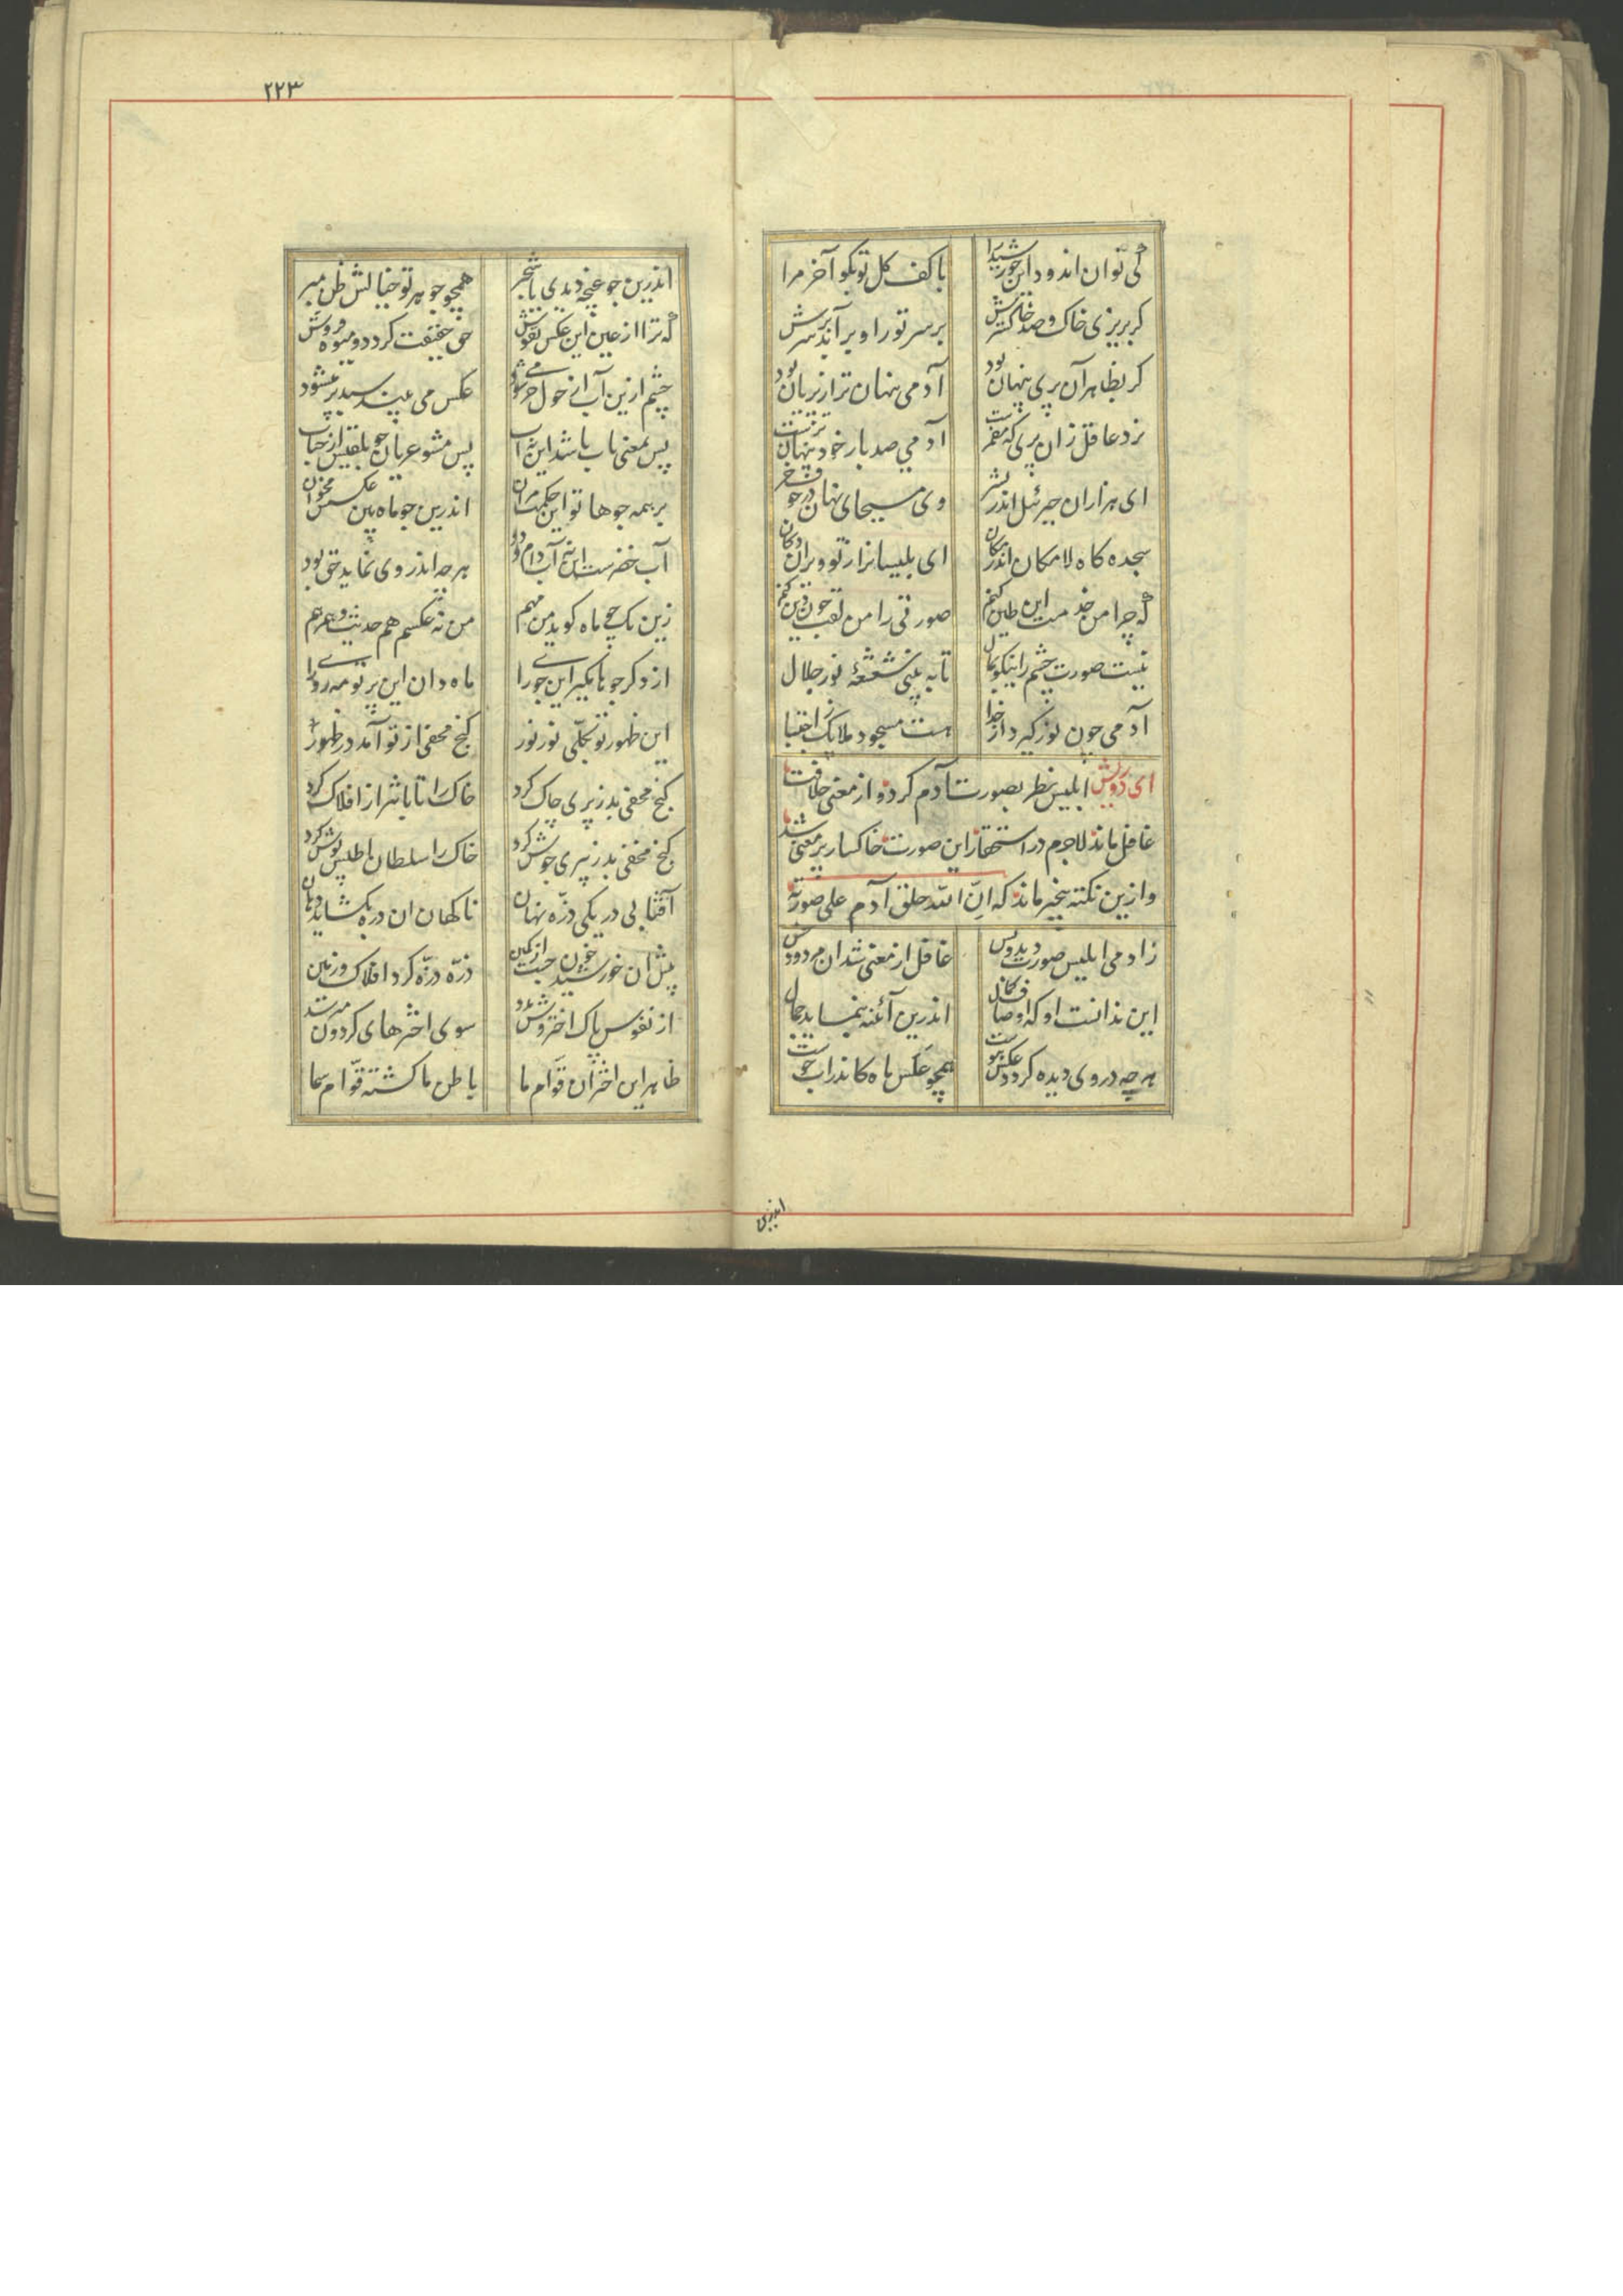 کی توان اندود این خورشید را
با کف کل تو بکو آخر مرا
کر بریزی خاک و صد خاکسترش
بر سر نور او برآید بر سرش
کر بظاهر آن پری پنهان بود
آدمی پنهان تر از پریان بود
نزد عاقل زان پری که مضمرست
آدمی صد بار خود پنهان ترست
ای هزاران جبرئیل اندر بشر
وی مسیحای نهان در جوف خر
سجده کاه لامکان اندر مکان
ای بلیسانرا ز تو ویران دکان
که چرا من خدمت این طین کنم
صورتی را من لقب چون دین کنم
نیست صورت چشم را نیکو بمال
تا به بینی شعشعهٔ نور جلال
آدمی چون نور کیرد از خدا
هست مسجود ملایک ز اجتبا
ای درویش ابلیس نظر بصورت آدم کرد و از معنی خلافت
غافل ماند لاجرم در استحقار این صورت خاکسار بر معنی شد
و ازین نکته بیخبر ماند که انّ الله خلق آدم علی صورته
زادمی ابلیس صورت دید و بس
غافل از معنی شد آن مردود خس
این ندانست او که اوصاف کمال
اندرین آئنه بنماید جمال
هرچه در وی دیده کردد عکس هوست
همچو عکس ماه کاندر آب جوست
اندرین
۲۲۳
اندرین جو غنچه دیدی با شجر
همچو جوهر تو خیالش ظن مبر
که ترا از عین این عکس نقوش
حق حقیقت کردد و میوه فروش
چشم ازین آب از حول حر میشود
عکس می بیند سبد پر میشود
پس بمعنی باب باشد این نه آب
پس مشو عریان چو بلقیس از حباب
بر همه جوها تو این حکمت مران
اندرین جو ماه بین عکسش مخوان
آب خضرست این نه آب دام و دد
هرچه اندر وی نماید حق بود
زین تک جو ماه کوید من مهم
من نه عکسم هم حدیث و همرهم
از دکر جوها مکیر این جوی را
ماه دان این پرتو مه روی را
این ظهور تو تجلّی نور نور
کنج مخفی از تو آمد در ظهور
کنج مخفی بد ز پری چاک کرد
خاک را تابان‌تر از افلاک کرد
کنج مخفی بد ز پری جوش کرد
خاک را سلطان اطلس پوش کرد
آفتابی در یکی ذرّه نهان
ناکهان آن ذره بکشاید دهان
ذرّه ذرّه کردد افلاک و زمین
پیش آن خورشید چون جست از کمین
از نفوس پاک اختروش مدد
سوی اخترهای کردون میرسد
ظاهر این اختران قوّام ما
باطن ما کشته قوّام سما